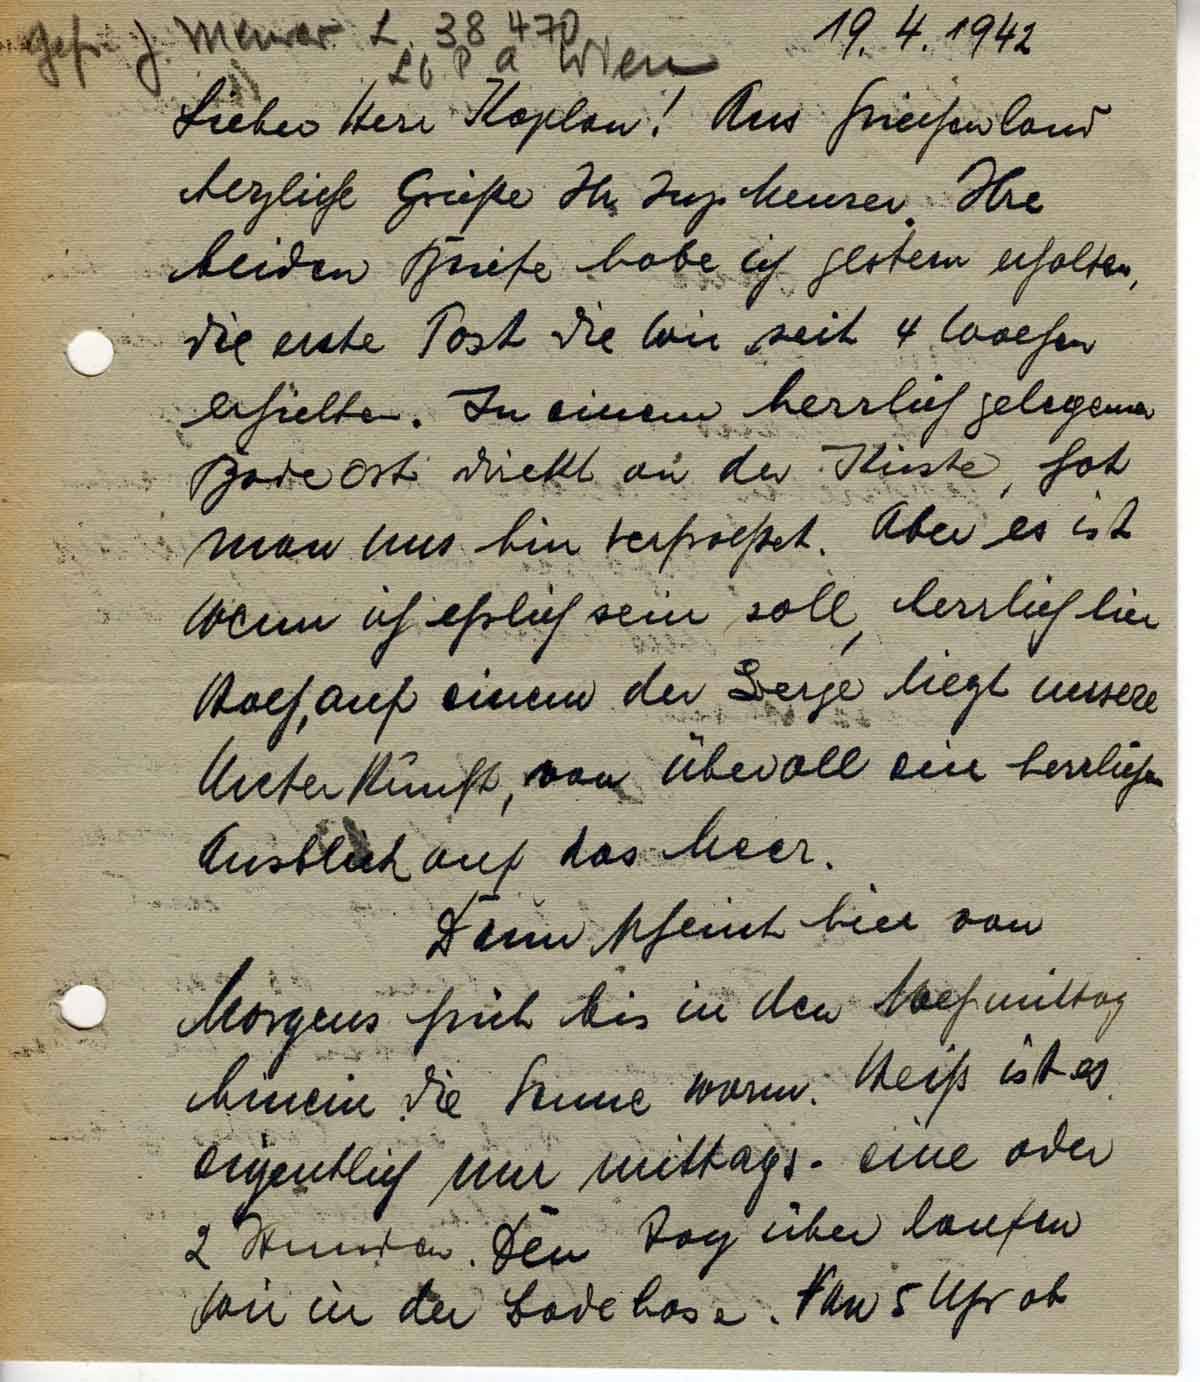 Gefr. J. Meurer L. 38 470
LGPA Wien
19. 4. 1942
Lieber Herr Kaplan! Aus Griechenland
herzliche Grüße Ihr Jupp Meurer. Ihre
beiden Briefe habe ich gestern erhalten,
die erste Post die wir seit 4 Wochen
erhielten. In einem herrlich gelegenen
Badeort direkt an der Küste, hat
man uns hin verfrachtet. Aber es ist
wenn ich ehrlich sein soll, herrlich hier
Hoch, auf einem der Berge liegt unsere
Unterkunft, von überall ein herrlichen
Ausblick auf das Meer.
Dann scheint hier von
Morgens früh bis in den Nachmittag
hinein die Sonne warm. Heiß ist es
eigentlich nur mittags. eine oder
2 Stunden. Den Tag über laufen
wir in der Badehose. Von 5 Uhr ab